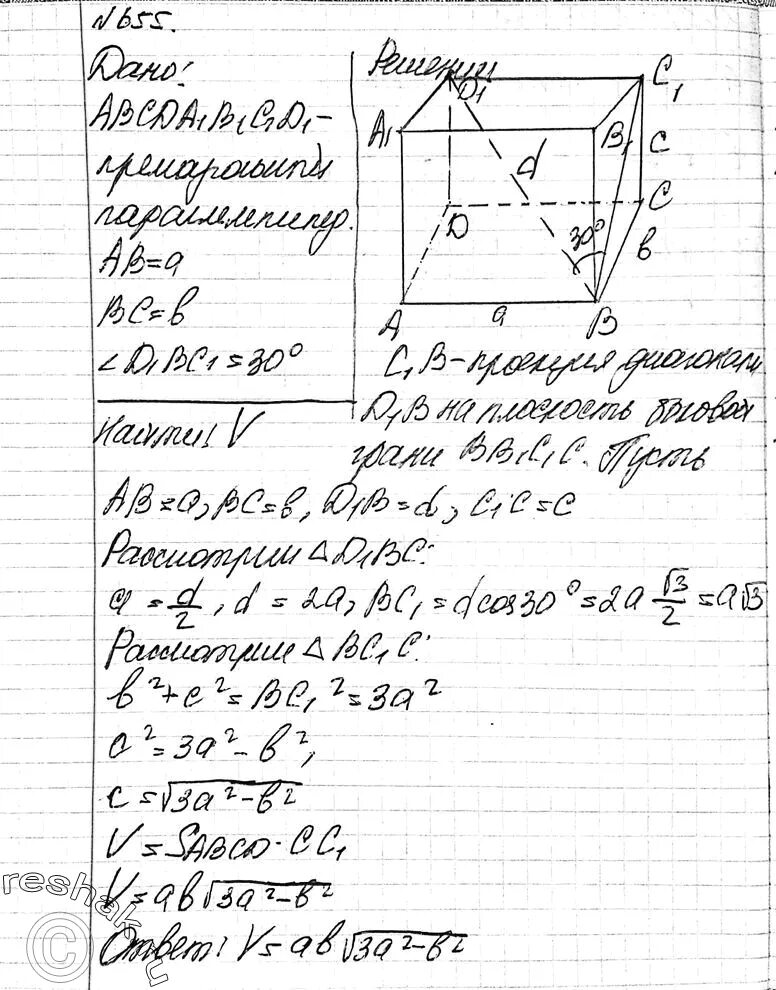 №655.
Дано:
ABCDA₁B₁C₁D₁ –
прямоугольный
параллелепипед.
AB=a
BC=b
∠D₁BC₁=30°
Найти: V
Решение
D₁
C₁
A₁
B₁
c
d
D
C
30°
b
A
a
B
C₁B – проекция диагонали
D₁B на плоскость боковой
грани BB₁C₁C. Пусть
AB=a, BC=b, D₁B=d, C₁C=c
Рассмотрим △D₁BC:
a = d/2, d = 2a, BC₁ = d cos30° = 2a √3/2 = a√3
Рассмотрим △BC₁C:
b²+c² = BC₁² = 3a²
c² = 3a² – b²,
c = √3a²–b²
V = SABCD · CC₁
V = ab √3a²–b²
Ответ: V = ab √3a²–b²
reshak.ru
©